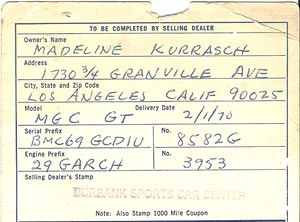 TO BE COMPLETED BY SELLING DEALER
Owner's Name
MADELINE KURRASCH
Address
1730 3/4 GRANVILLE AVE
City, State and Zip Code
LOS ANGELES CALIF 90025
Model Delivery Date
MGC GT 2/1/70
Serial Prefix No.
BMC69GCD1U 8582G
Engine Prefix No.
29GARCH 3953
Selling Dealer's Stamp
BURBANK SPORTS CAR CENTER
Note: Also Stamp 1000 Mile Coupon